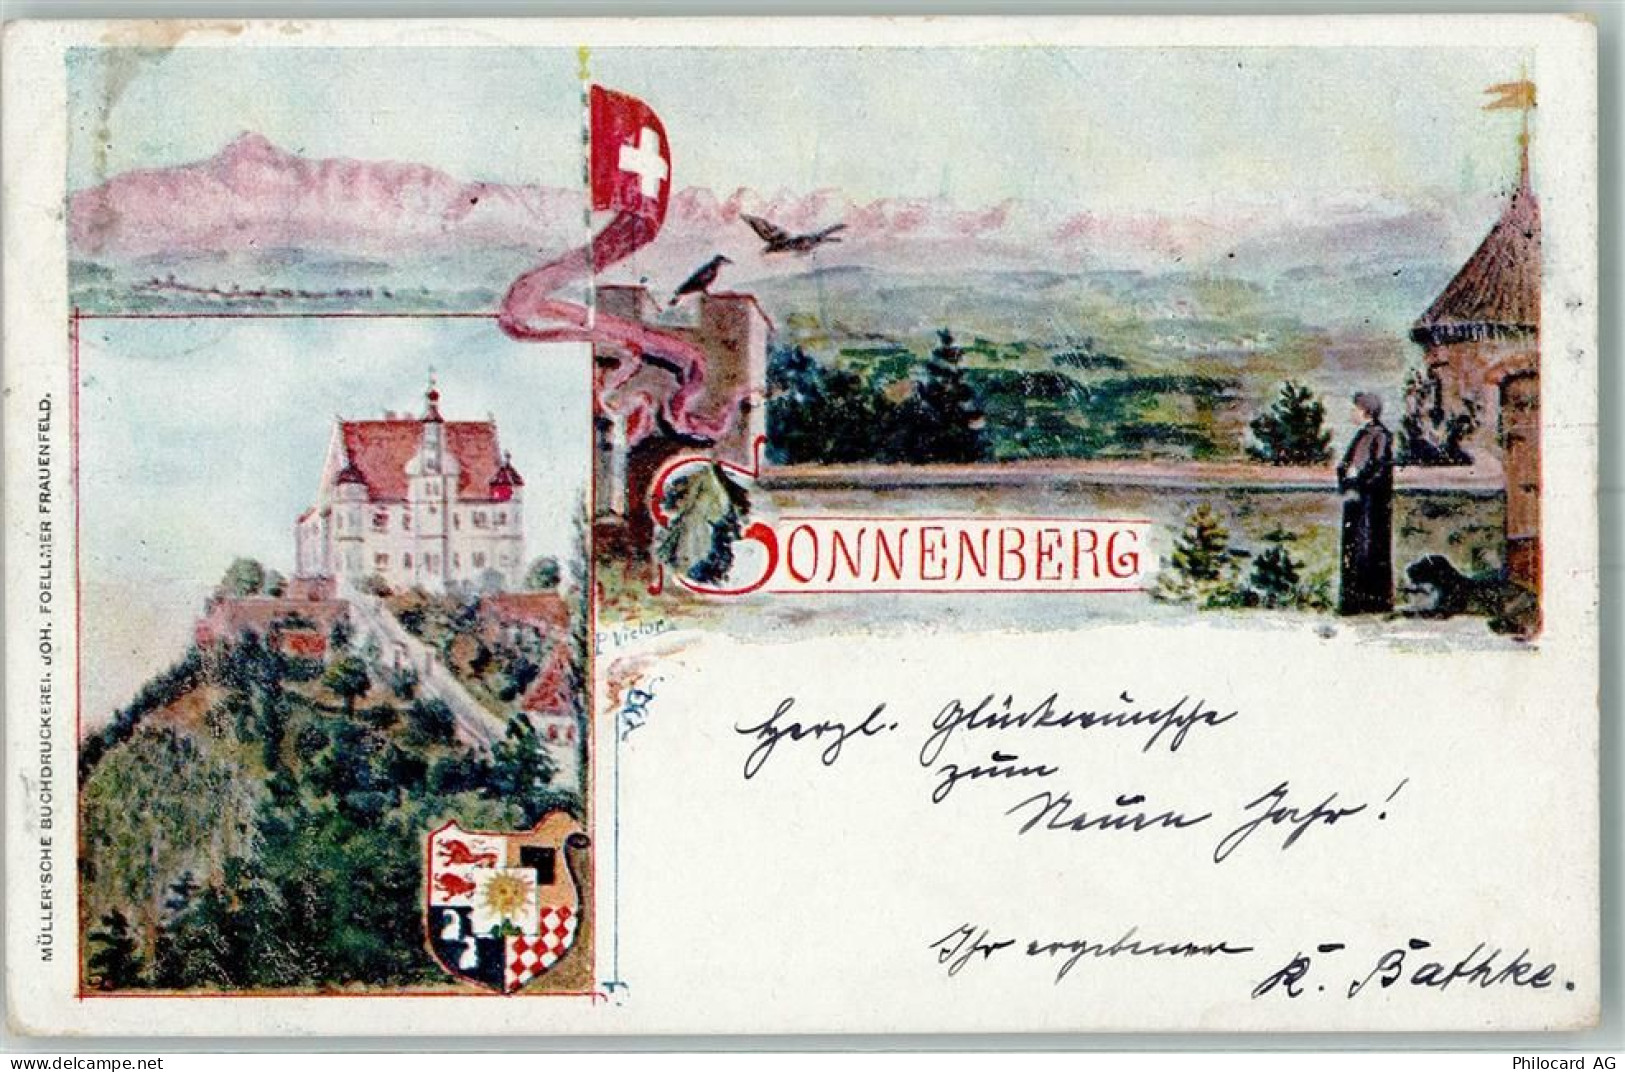 SONNENBERG
P. Victor
Herzl. Glückwünsche
zum
Neuen Jahr!
Ihr ergebener
K. Bathke.
MÜLLER'SCHE BUCHDRUCKEREI. JOH. FOELLMER FRAUENFELD.
www.delcampe.net
Philocard AG